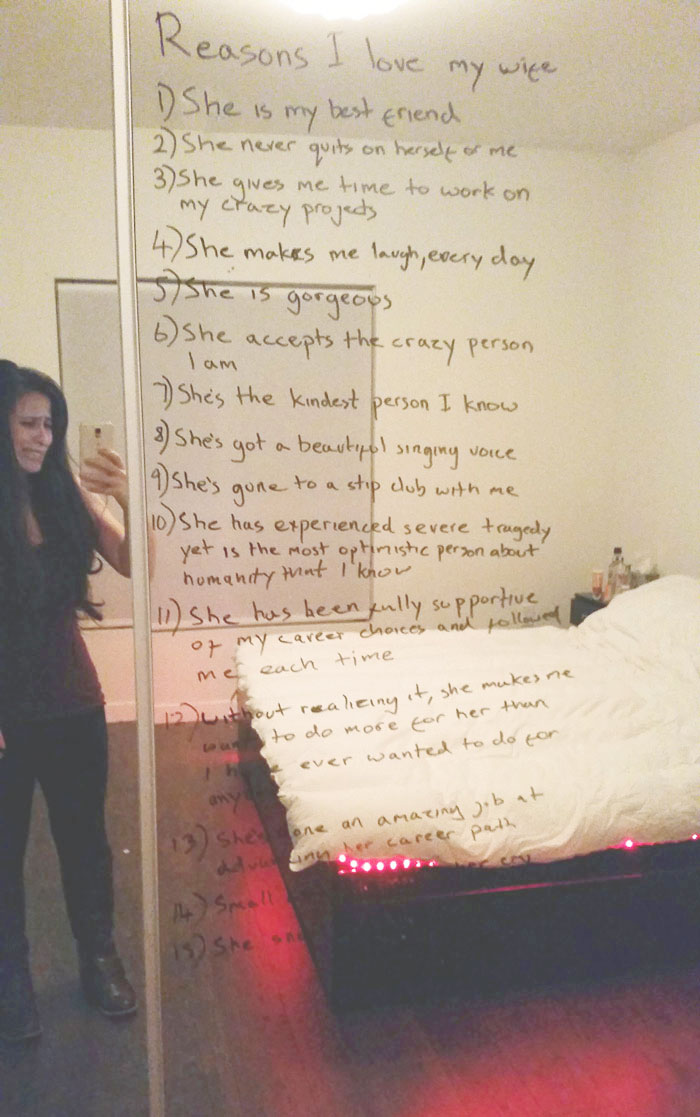 Reasons I love my wife
1) She is my best friend
2) She never quits on herself or me
3) She gives me time to work on
my crazy projects
4) She makes me laugh, every day
5) She is gorgeous
6) She accepts the crazy person
I am
7) She's the kindest person I know
8) She's got a beautiful singing voice
9) She's gone to a stip club with me
10) She has experienced severe tragedy
yet is the most optimistic person about
humanity that I know
11) She has been fully supportive
of my career choices and followed
me each time
12) Without realizing it, she makes me
to do more for her than
I have ever wanted to do for
13) She's done an amazing job at
her career path
14) Small her cry
15) She